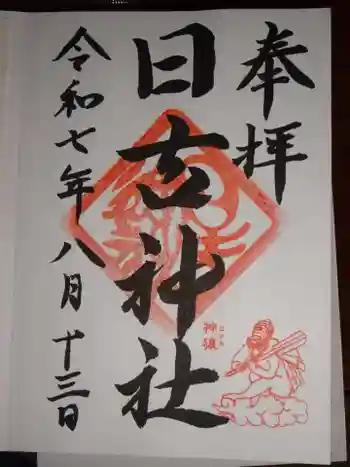 奉拝
日吉神社
令和七年八月十三日
神猿